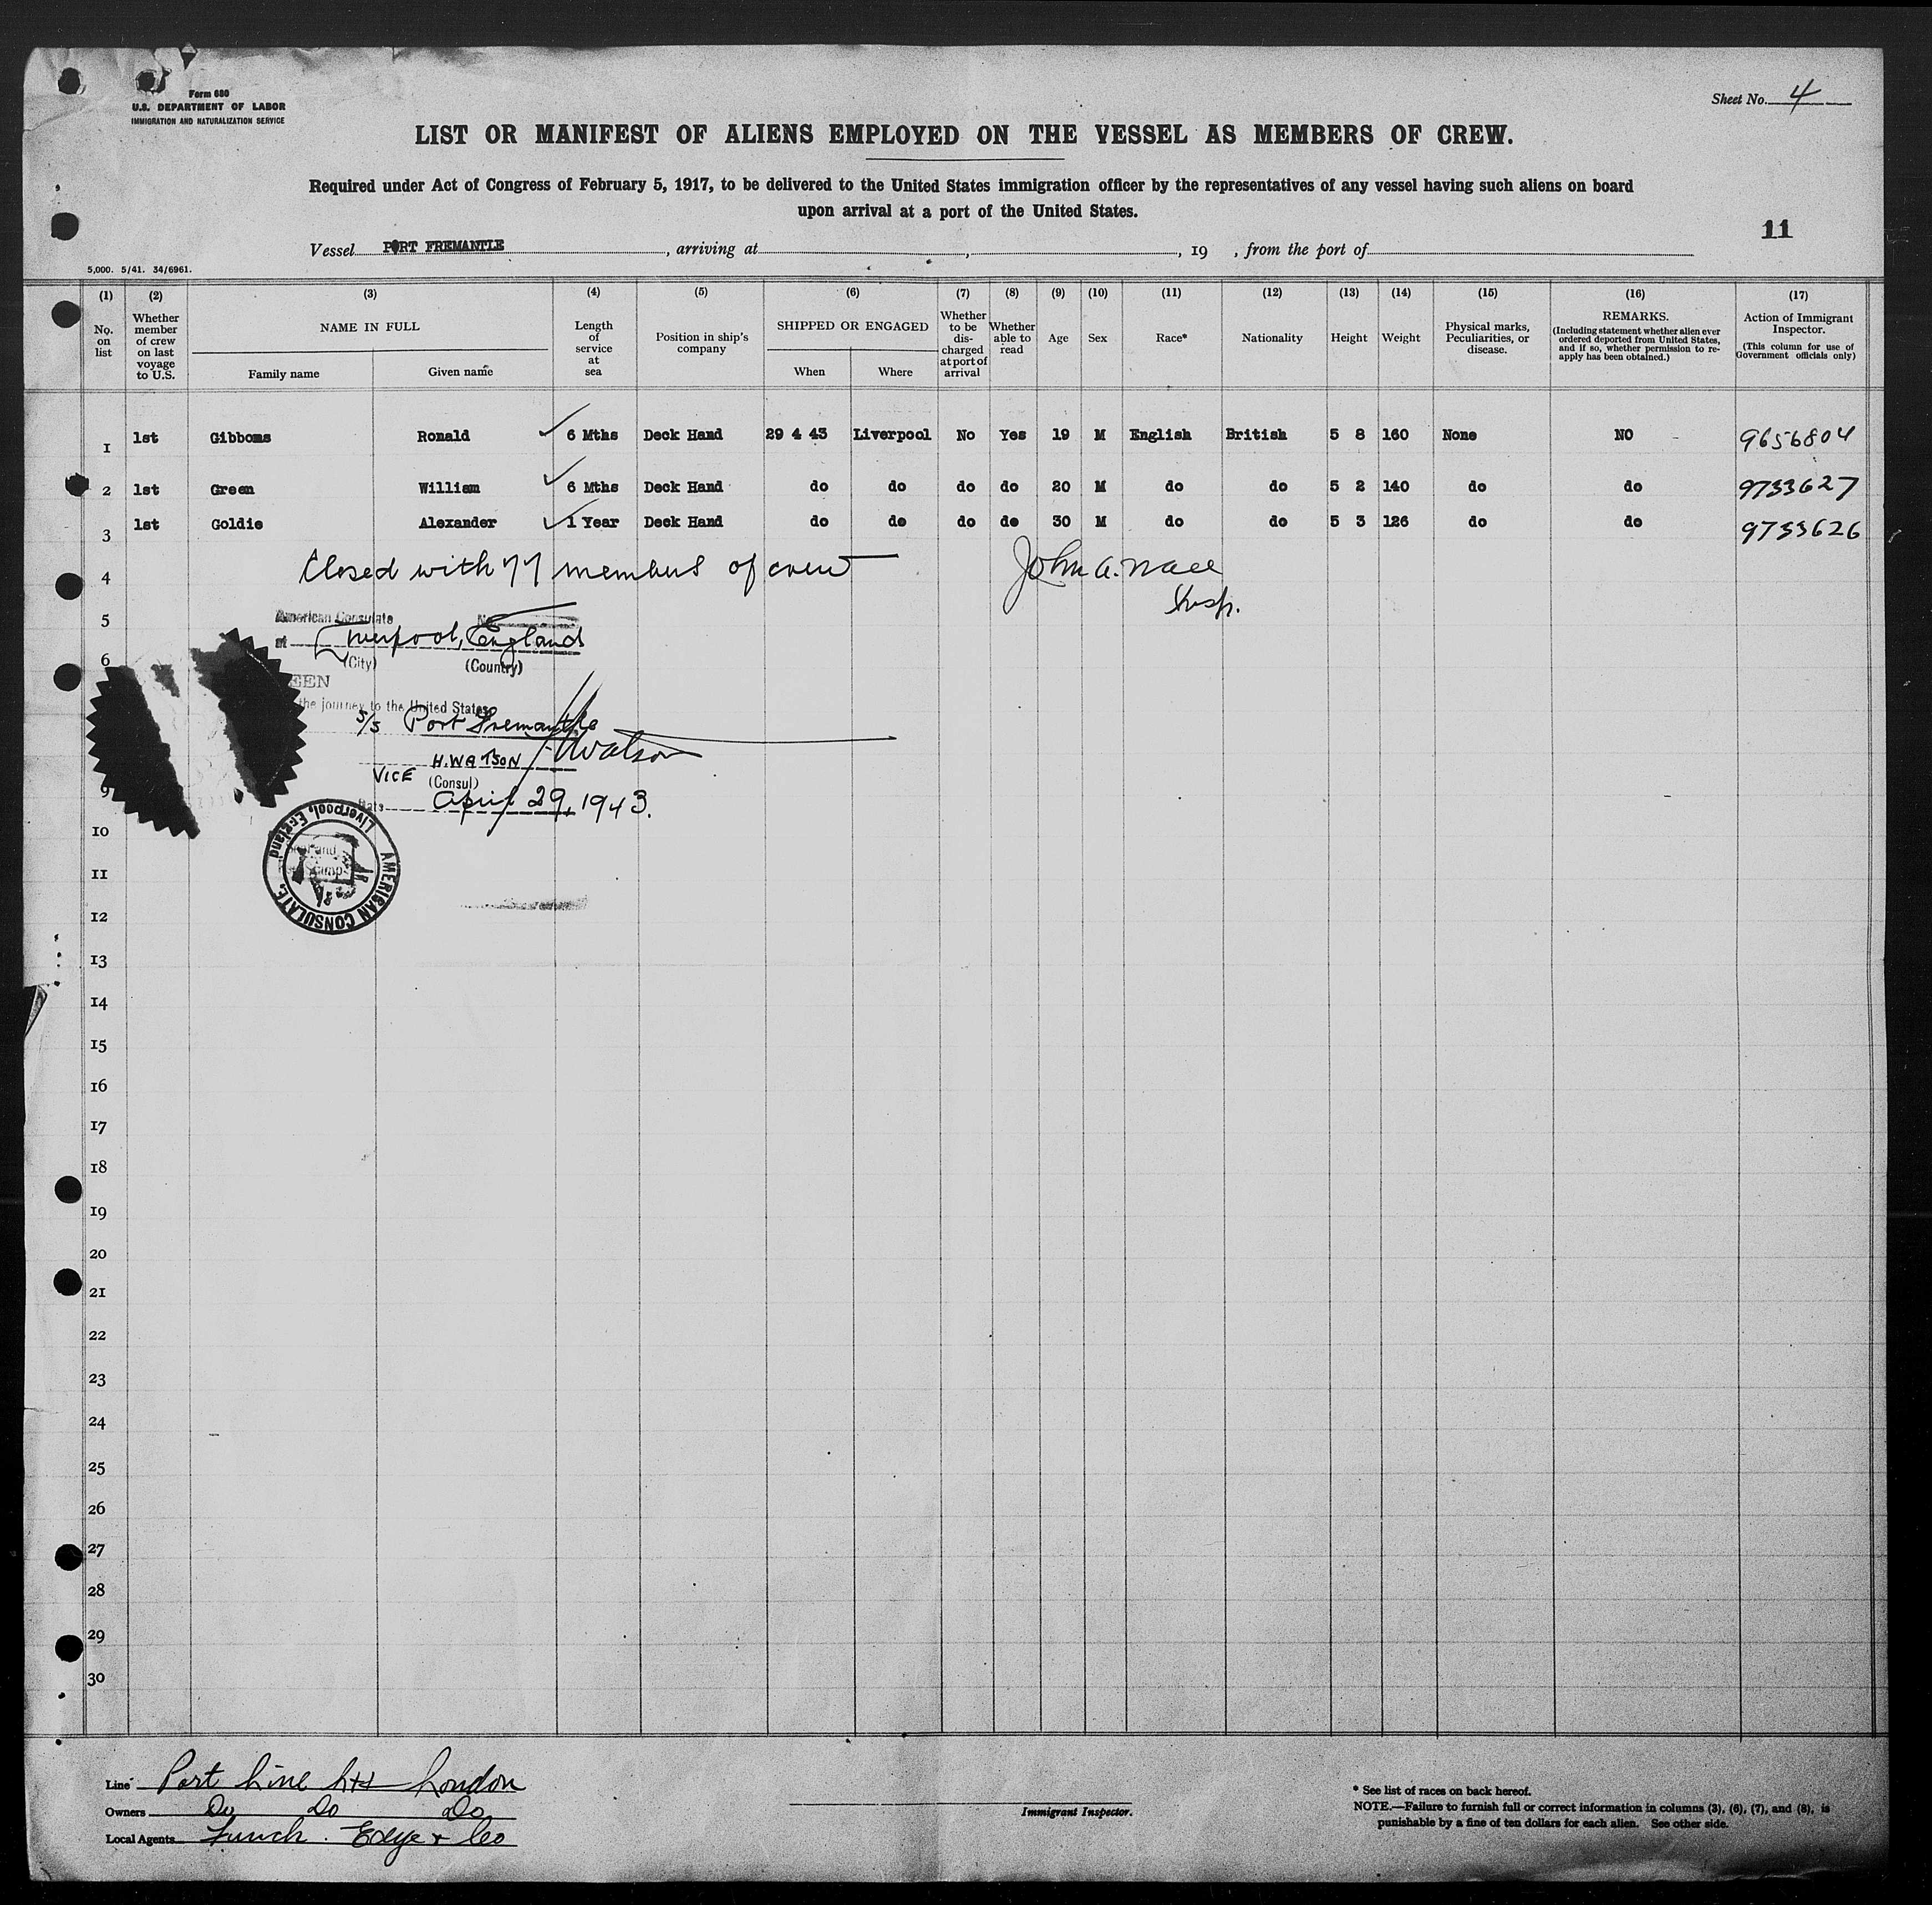 Form 680
U.S. DEPARTMENT OF LABOR
IMMIGRATION AND NATURALIZATION SERVICE
Sheet No. 4
LIST OR MANIFEST OF ALIENS EMPLOYED ON THE VESSEL AS MEMBERS OF CREW.
Required under Act of Congress of February 5, 1917, to be delivered to the United States immigration officer by the representatives of any vessel having such aliens on board
upon arrival at a port of the United States.
11
Vessel PORT FREMANTLE, arriving at , , 19 , from the port of
5,000. 5/41. 34/6961.
(1) (2) (3) (4) (5) (6) (7) (8) (9) (10) (11) (12) (13) (14) (15) (16) (17)
No. on list
Whether member of crew on last voyage to U.S.
NAME IN FULL
Family name Given name
Length of service at sea
Position in ship's company
SHIPPED OR ENGAGED
When Where
Whether to be discharged at port of arrival
Whether able to read
Age
Sex
Race*
Nationality
Height
Weight
Physical marks, Peculiarities, or disease.
REMARKS.
(Including statement whether alien ever ordered deported from United States, and if so, whether permission to re-apply has been obtained.)
Action of Immigrant Inspector.
(This column for use of Government officials only)
1 1st Gibboms Ronald 6 Mths Deck Hand 29 4 43 Liverpool No Yes 19 M English British 5 8 160 None NO 9656804
2 1st Green William 6 Mths Deck Hand do do do do 20 M do do 5 2 140 do do 9733627
3 1st Goldie Alexander 1 Year Deck Hand do do do do 30 M do do 5 3 126 do do 9733626
4 Closed with 77 members of crew John A. Nace
Insp.
5 American Consulate
at Liverpool, England
6 (City) (Country)
EEN
the journey to the United States
S/S Port Fremantle
HWatson
H. WATSON
VICE (Consul)
9 Date April 29, 1943.
AMERICAN CONSULATE, Liverpool, England
10
11
12
13
14
15
16
17
18
19
20
21
22
23
24
25
26
27
28
29
30
Line Port Line Ltd London
Owners Do Do Do
Local Agents Funch. Edye & Co
Immigrant Inspector.
* See list of races on back hereof.
NOTE.—Failure to furnish full or correct information in columns (3), (6), (7), and (8), is
punishable by a fine of ten dollars for each alien. See other side.